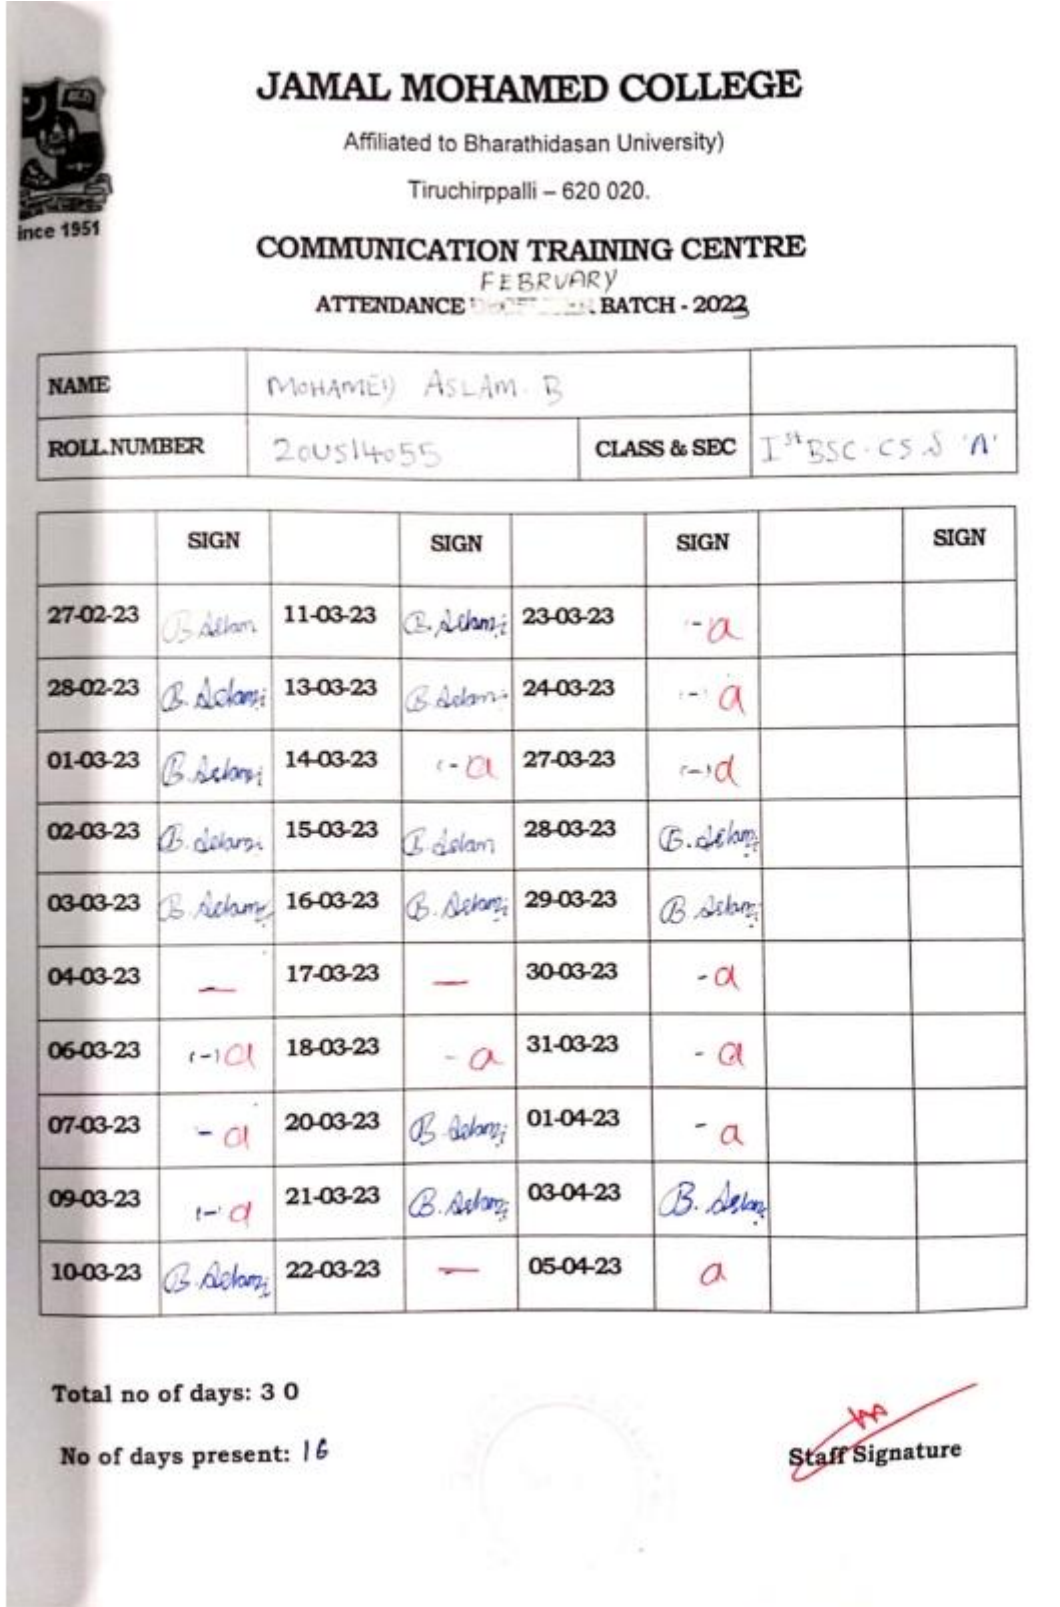 JAMAL MOHAMED COLLEGE
Affiliated to Bharathidasan University)
Tiruchirppalli – 620 020.
ince 1951
COMMUNICATION TRAINING CENTRE
FEBRUARY
ATTENDANCE BATCH - 2023
NAME MOHAMED ASLAM. B
ROLL.NUMBER 20US14055 CLASS & SEC Ist BSC. CS.S 'A'
SIGN SIGN SIGN SIGN
27-02-23 B Aslam 11-03-23 B. Aslam 23-03-23 - a
28-02-23 B. Aslam 13-03-23 B. Aslam 24-03-23 (-) a
01-03-23 B. Aslam 14-03-23 (- a 27-03-23 (-) a
02-03-23 B. Aslam 15-03-23 B. Aslam 28-03-23 B. Aslam
03-03-23 B. Aslam 16-03-23 B. Aslam 29-03-23 B. Aslam
04-03-23 — 17-03-23 — 30-03-23 - a
06-03-23 (-) a 18-03-23 - a 31-03-23 - a
07-03-23 - a 20-03-23 B. Aslam 01-04-23 - a
09-03-23 (-) a 21-03-23 B. Aslam 03-04-23 B. Aslam
10-03-23 B. Aslam 22-03-23 — 05-04-23 a
Total no of days: 3 0
No of days present: 16
Staff Signature